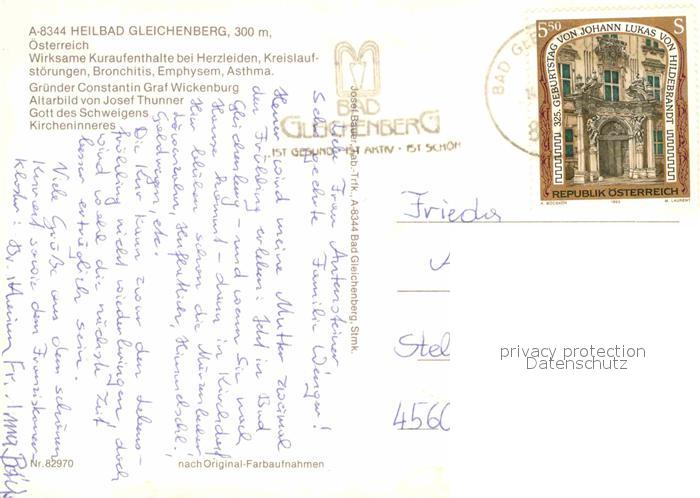 A-8344 HEILBAD GLEICHENBERG, 300 m,
Österreich
Wirksame Kuraufenthalte bei Herzleiden, Kreislauf-
störungen, Bronchitis, Emphysem, Asthma.
Gründer Constantin Graf Wickenburg
Altarbild von Josef Thunner
Gott des Schweigens
Kircheninneres
BAD
GLEICHENBERG
IST GESUND · IST AKTIV · IST SCHÖN
BAD GLEI
5.50 S
325. GEBURTSTAG VON JOHANN LUKAS VON HILDEBRANDT
REPUBLIK ÖSTERREICH
A. BÖCSKÖR 1993 M. LAURENT
Josef Bauer, Tab.-Trfk. A-8344 Bad Gleichenberg, Stmk.
Sehr geehrte Frau Antensteiner,
geehrte Familie Wenger!
Heuer wird meine Mutter zweimal
den Frühling erleben: Jetzt in Bad
Gleichenberg und wenn Sie nach
Hause kommt - dann in Kirchdorf
Hier blühen schon die
Löwenzahn, Huflattich,
etc.
Die Kur kann zwar den Lebens-
frühling nicht wiederbringen, doch
wird wohl die nächste Zeit
besser erträglich sein.
Viele Grüße aus dem schönen
Kurort sowie dem Franziskaner
kloster: Fr. Anna
Frieda
A
Stei
4560
privacy protection
Datenschutz
Nr. 82970
nach Original-Farbaufnahmen